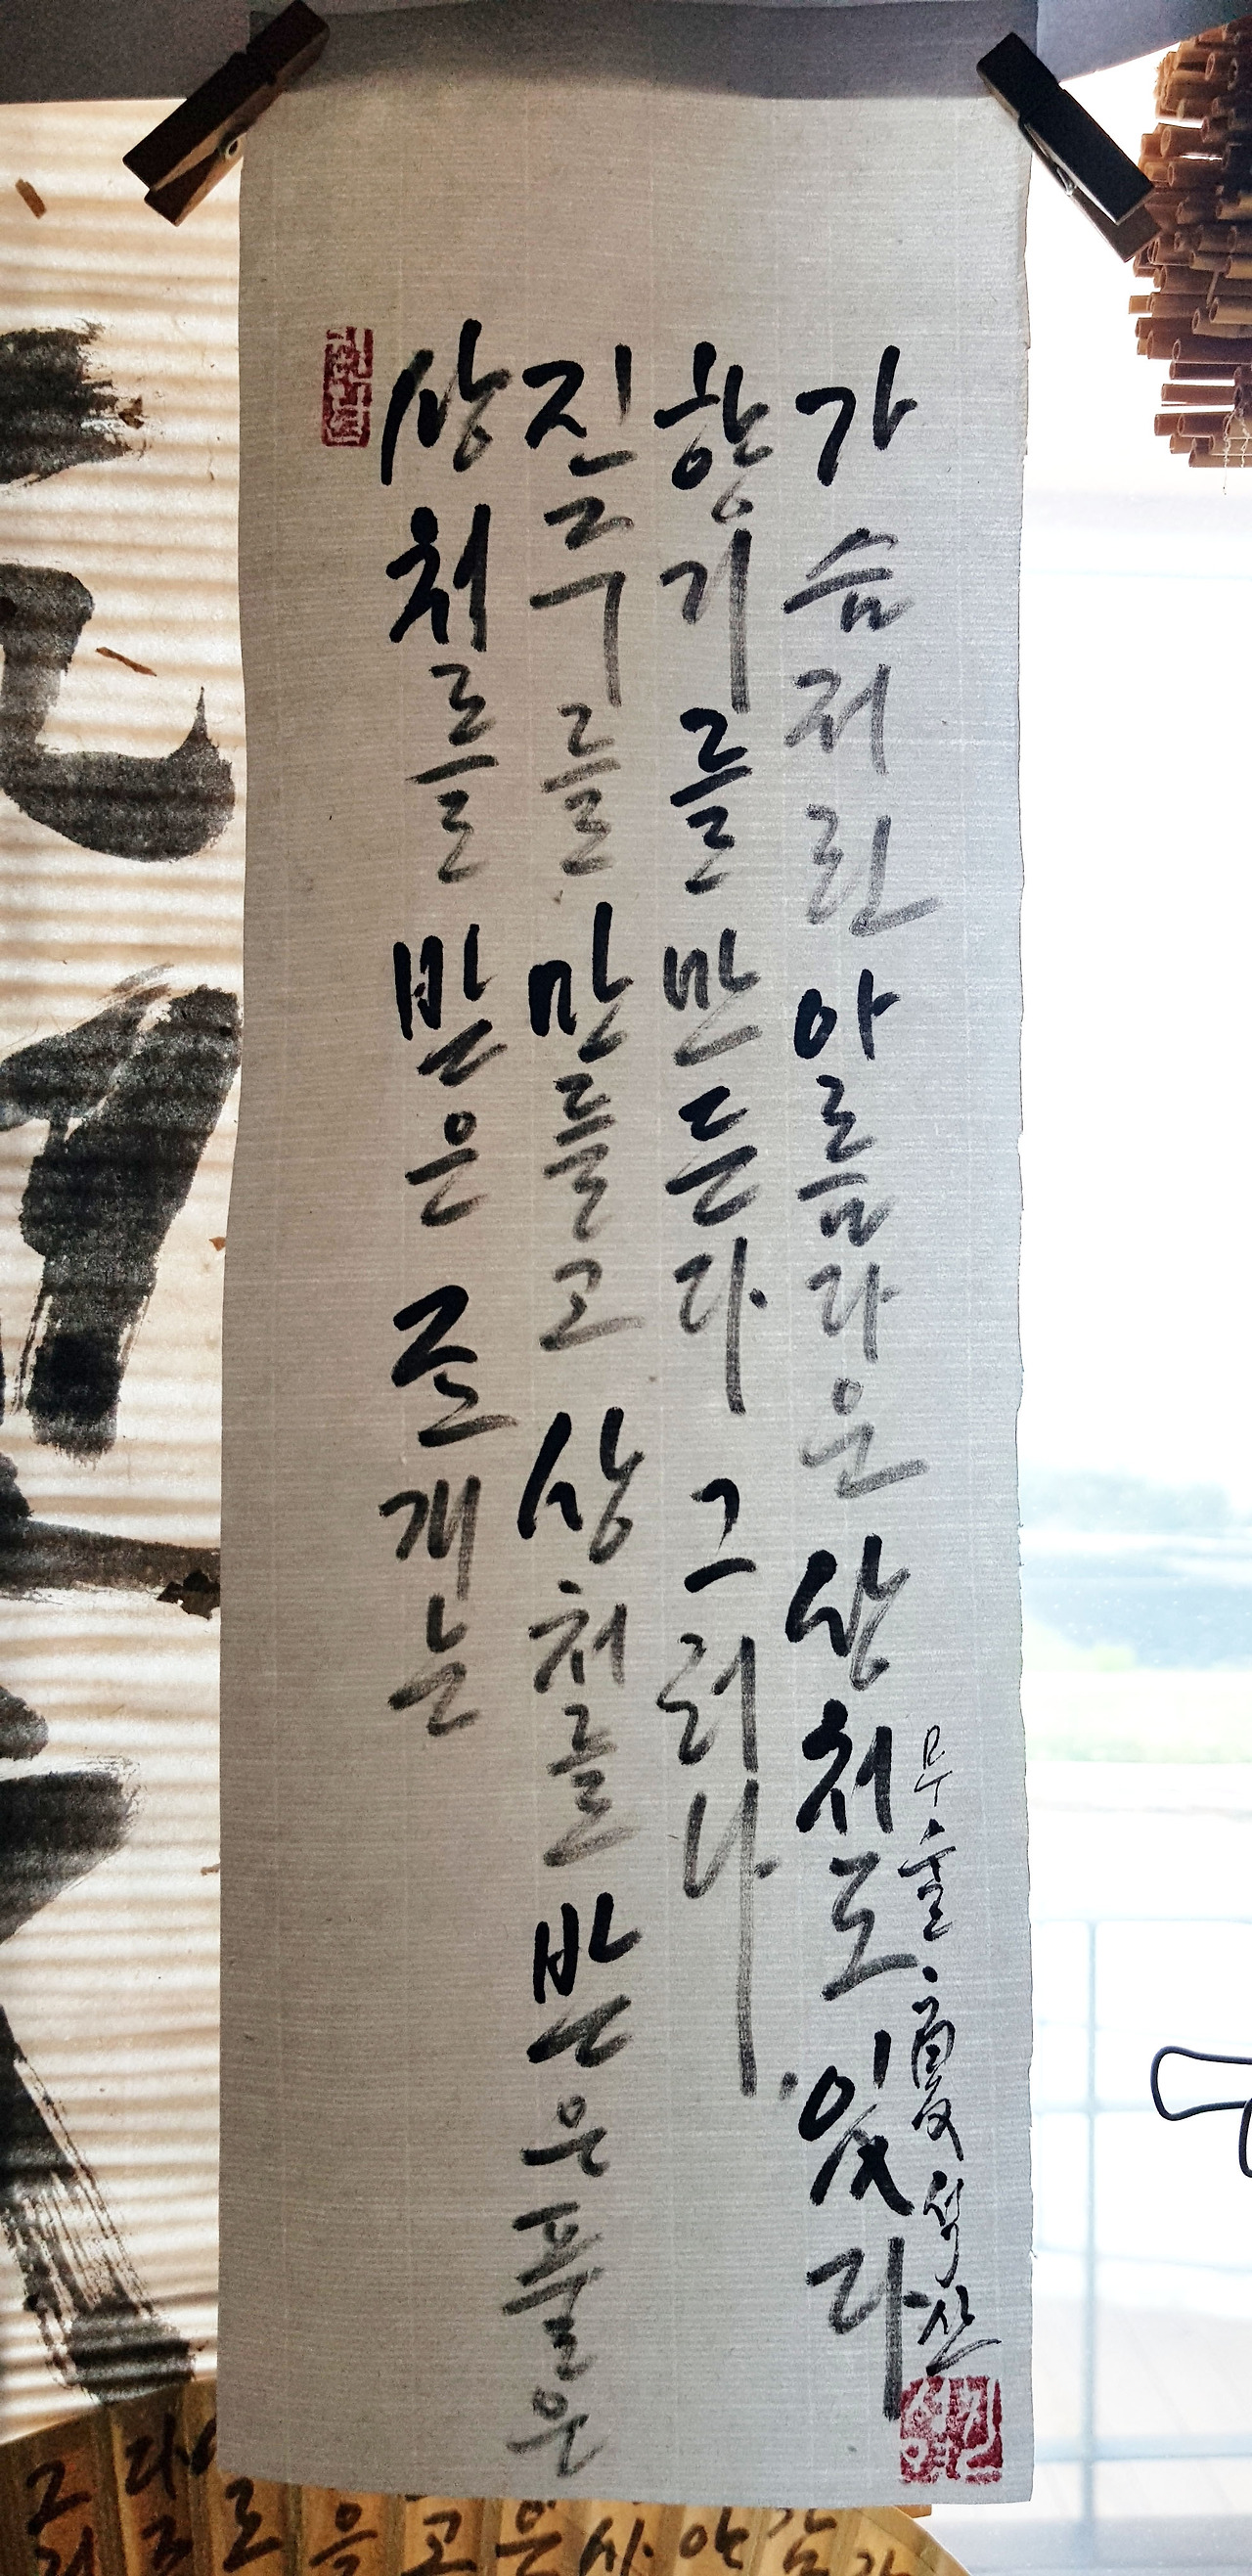 상처를 받은 조개는
진주를 만들고 상처를 받은 풀은
향기를 만든다 그러나
가슴저린 아름다운 상처도 있다
무술 夏 석산